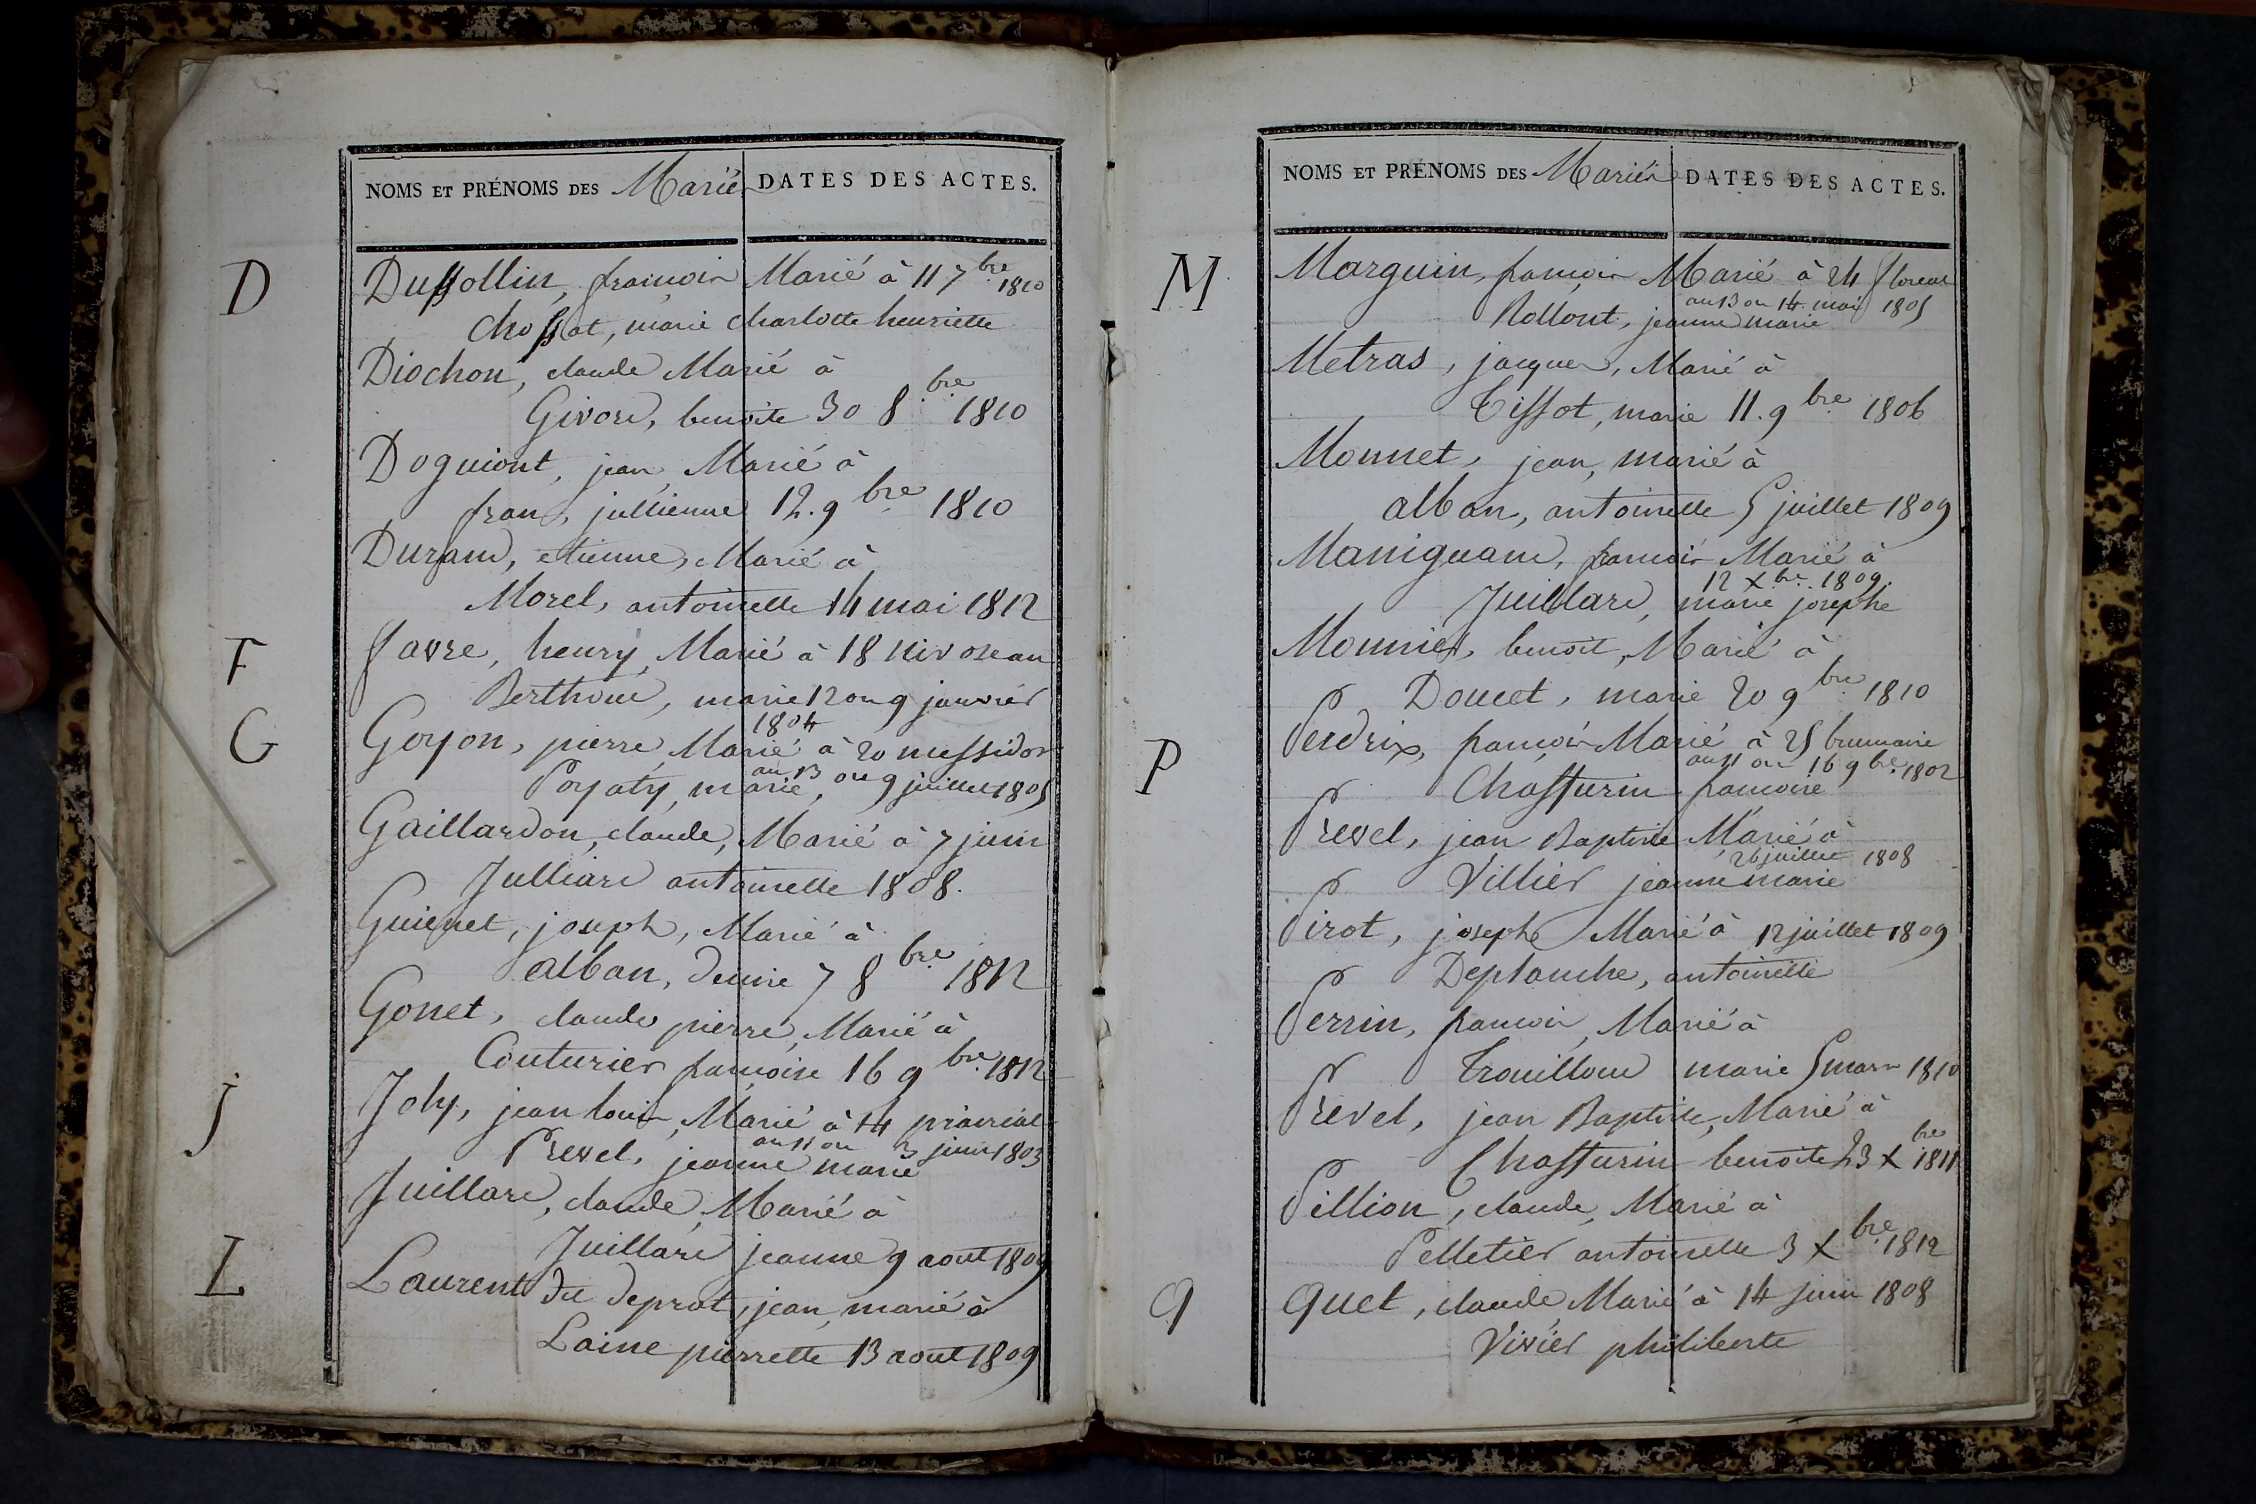 NOMS ET PRÉNOMS DES Mariés DATES DES ACTES.
D
Dussollin, francois Marié à 11 7bre 1810
chossat, marie charlotte henriette
Diochon, claude Marié à
Givord, benoite 30 8bre 1810
Doguiont, jean, Marié à
franc, jullienne 12. 9bre 1810
Durand, etienne, Marié à
Morel, antoinette 14 mai 1812
F
favre, henry, Marié à 18 nivose an
Berthoud, marie 12 ou 9 janvier
1804
G
Goyon, pierre, Marié à 20 messidor
an 13 ou 9 juillet 1805
Poyaty, marie,
Gaillardon, claude, Marié à 7 juin
Julliard antoinette 1808.
Guienet, joseph, Marié à
alban, denise 7 8bre 1812
Gonet, claude pierre, Marié à
Couturier francoise 16 9bre 1812
J
Joly, jean louis, Marié à 14 prairial
an 11 ou 3 juin 1803
Prevel, jeanne marie
Juillard, claude, Marié à
Juillard jeanne 9 aout 1809
L
Laurent dit deprat, jean, marié à
Laine pierrette 13 aout 1809
NOMS ET PRÉNOMS DES Mariés DATES DES ACTES.
M
Marguin, francois Marié à 24 floreal
an 13 ou 14 mai 1805
Rollont, jeanne marie
Metras, jacques, Marié à
Tissot, marie 11. 9bre 1806
Monnet, jean, marié à
alban, antoinette 5 juillet 1809
Maniguand, francois Marié à
12 Xbre 1809.
Juillard, marie josephe
Monnier, benoit, Marié à
Doucet, marie 20 9bre 1810
P
Perdrix, francois Marié à 25 brumaire
an 11 ou 16 9bre 1802
Chassurin francoise
Prevel, jean Baptiste Marié à
26 juillet 1808
Villier jeanne marie
Pirot, josephe Marié à 12 juillet 1809
Deplanche, antoinette
Perrin, francois, Marié à
Trouilloud marie 5 mars 1810
Prevel, jean Baptiste, Marié à
Chassurin benoite 23 Xbre 1811
Pillion, claude, Marié à
Pelletier antoinette 3 Xbre 1812
Q
Quet, claude Marié à 14 juin 1808
Vivier philiberte